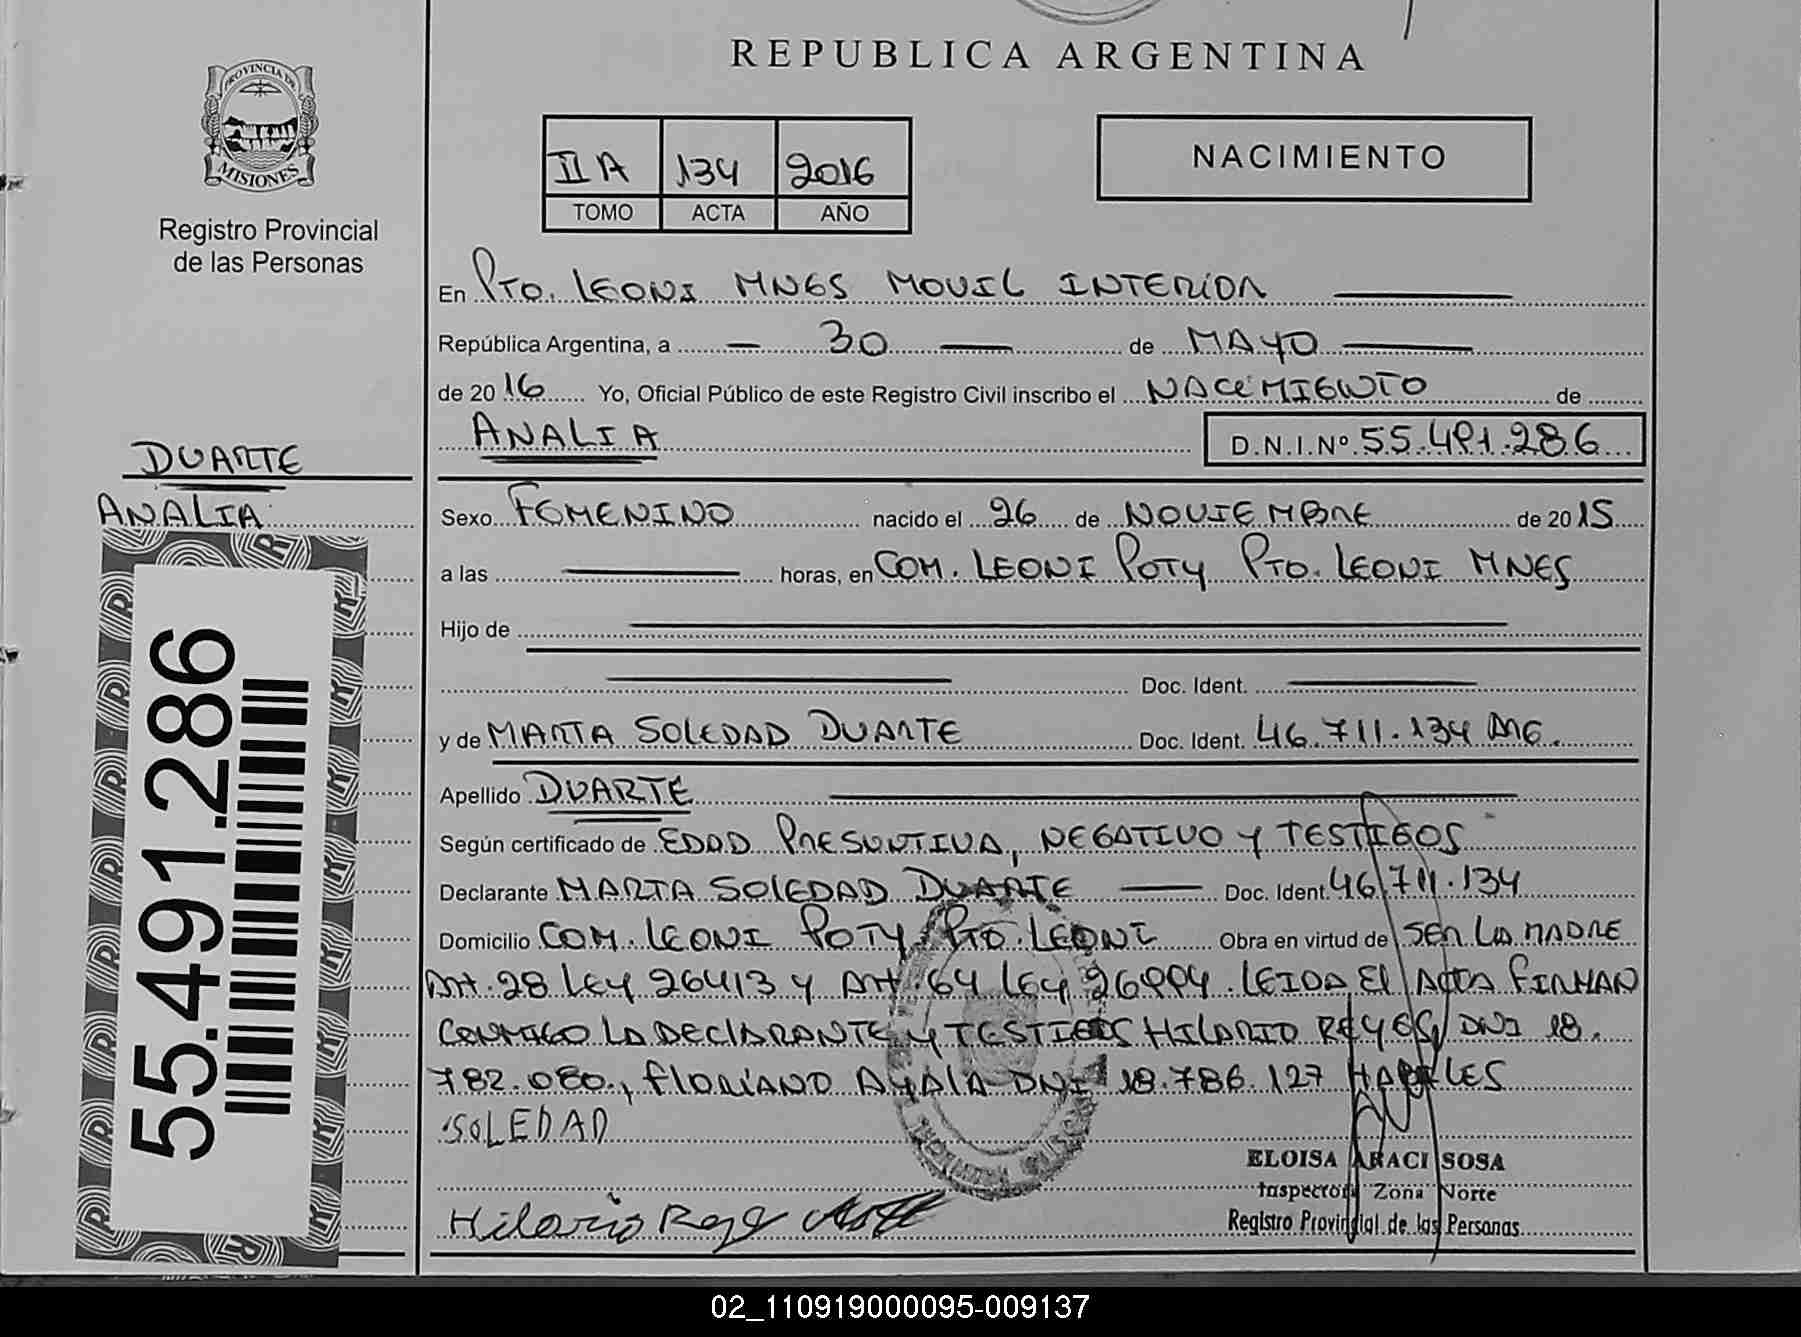 REPUBLICA ARGENTINA
PROVINCIA DE
MISIONES
Registro Provincial
de las Personas
II A 134 2016
TOMO ACTA AÑO
NACIMIENTO
En PTO. LEONI MNES MOVIL INTERIOR
República Argentina, a 30 de MAYO
de 2016 Yo, Oficial Público de este Registro Civil inscribo el NACIMIENTO de
ANALIA D.N.I.Nº 55.491.286
DUARTE
ANALIA
55.491.286
Sexo FEMENINO nacido el 26 de NOVIEMBRE de 2015
a las horas, en COM. LEONI POTY PTO. LEONI MNES
Hijo de
Doc. Ident.
y de MARTA SOLEDAD DUARTE Doc. Ident. 46.711.134 ARG.
Apellido DUARTE
Según certificado de EDAD PRESUNTIVA, NEGATIVO Y TESTIGOS
Declarante MARTA SOLEDAD DUARTE Doc. Ident. 46.711.134
Domicilio COM. LEONI POTY PTO. LEONI Obra en virtud de SER LA MADRE
Art. 28 LEY 26413 Y Art. 64 LEY 26994. LEIDA El ACTA FIRMAN
CONMIGO LA DECLARANTE Y TESTIGOS HILARIO REYES, DNI 18.
782.080., FLORIANO AYALA DNI 18.786.127 HABILES
SOLEDAD
Hilario Reye
ELOISA ARACI SOSA
Inspectora Zona Norte
Registro Provincial de las Personas
02_110919000095-009137